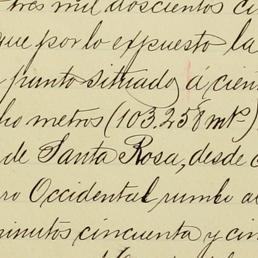 tres mil doscientos ci
que por lo expuesto la
punto situado á cien
ho metros (103,258 mts)
de Santa Rosa, desde
ro Occidental, rumbo a
minutos cincuenta y cin